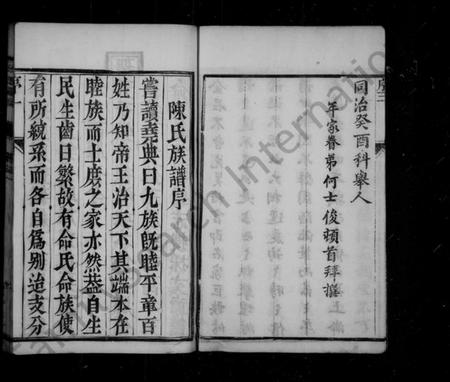 同治癸酉科舉人
年家眷弟何士俊頓首拜撰
陳氏族譜序
嘗讀堯典曰九族既睦平章百
姓乃知帝王治天下其端本在
睦族而士庶之家亦然蓋自生
民生齒日繁故有命氏命族使
有所統系而各自為别迨支分
序一